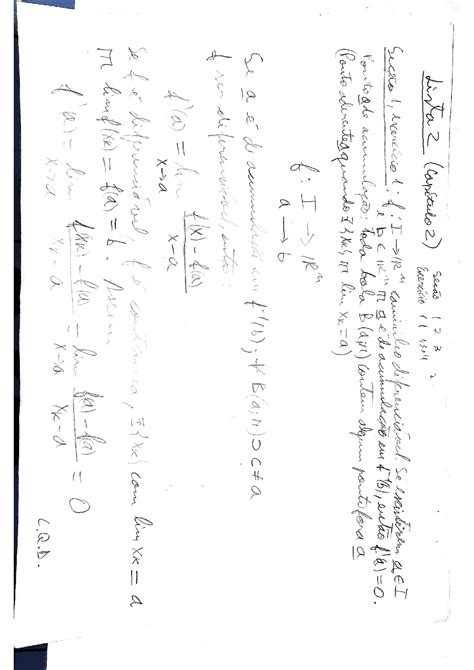 Lista 2 (Capítulo 2)
Seção 1 2 3
Exercício 1 1
Seção 1, exercício 1: f: I → ℝⁿ caminho diferenciável. Se existirem a ∈ I
e b ∈ ℝⁿ tq a é de acumulação em f⁻¹(b), então f'(a)=0.
Ponto de acumulação: toda bola B(a,r) contém algum ponto fora a
(Ponto aderente quando ∃ {xₖ} tq lim xₖ = a)
f: I → ℝⁿ
a → b
Se a é de acumulação em f⁻¹(b), ∀ B(a;r) ∋ c ≠ a
f ser diferenciável, então:
f'(a) = lim x→a f(x) - f(a) / x - a
Se f é diferenciável, f é contínua, ∃ {xₖ} com lim xₖ = a
tq lim f(xₖ) = f(a) = b. Assim
f'(a) = lim x→a f(xₖ) - f(a) / xₖ - a = lim x→a f(a) - f(a) / xₖ - a = 0
C.Q.D.